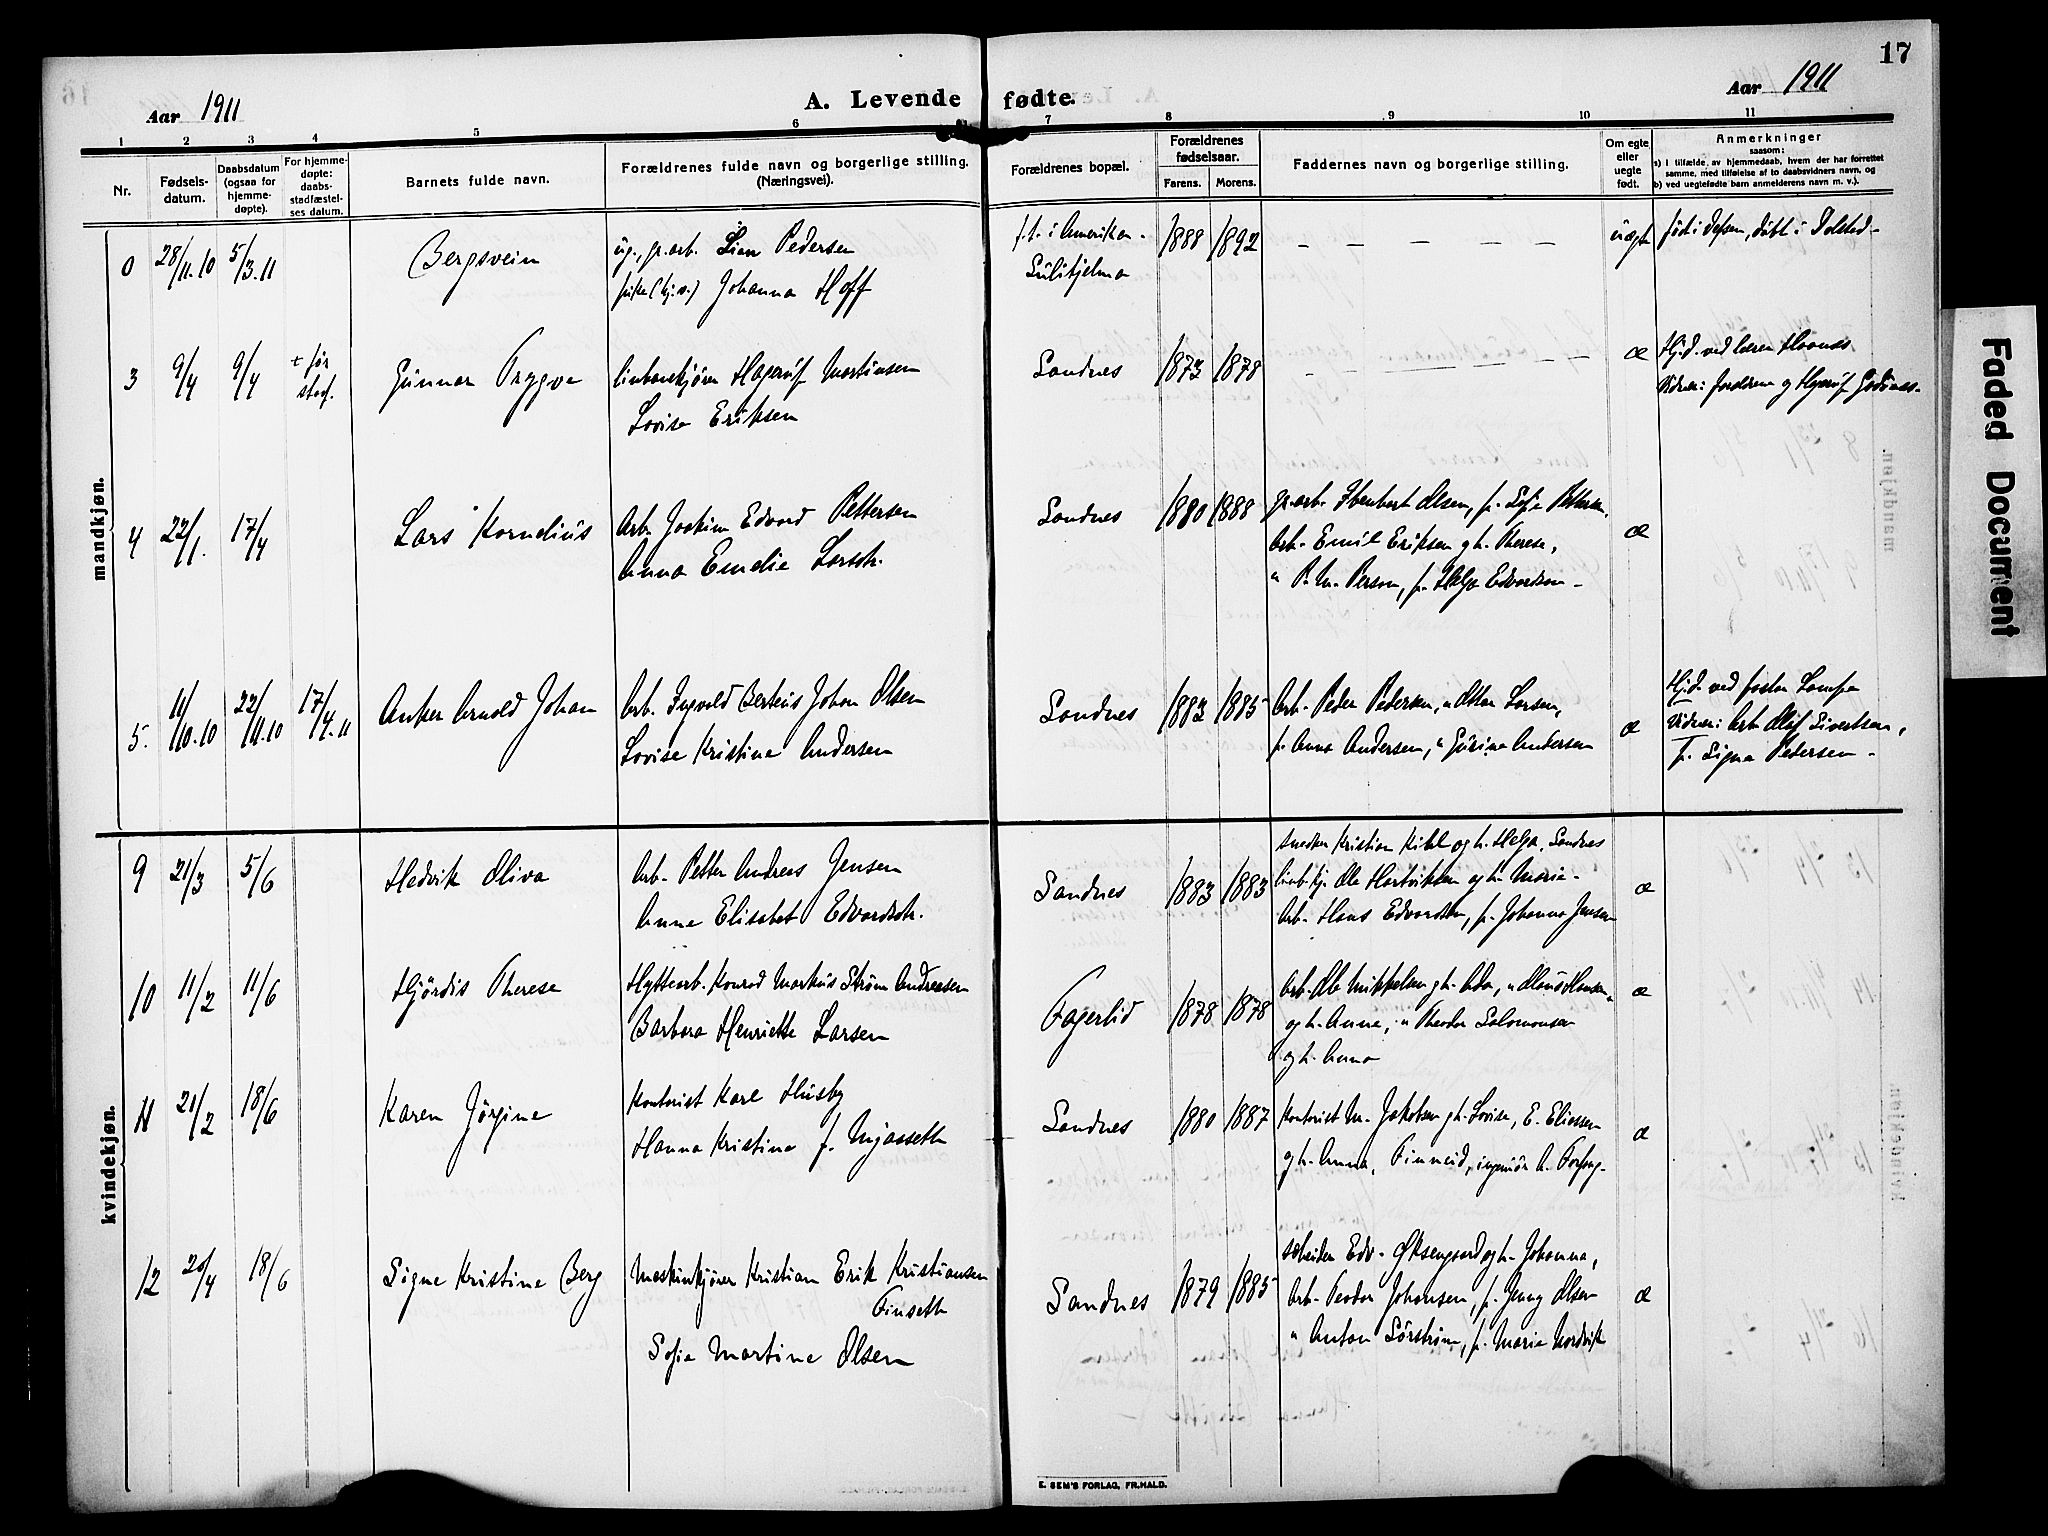 17
Aar 1911
A. Levende fødte.
Aar 1911
1 2 3 4 5 6 7 8 9 10 11
Nr.
Fødsels-
datum.
Daabsdatum
(ogsaa for
hjemme-
døpte).
For hjemme-
døpte:
daabs-
stadfæstel-
ses datum.
Barnets fulde navn.
Forældrenes fulde navn og borgerlige stilling.
(Næringsvei).
Forældrenes bopæl.
Forældrenes
fødselsaar.
Farens. Morens.
Faddernes navn og borgerlige stilling.
Om egte
eller
uegte
født.
Anmerkninger
saasom:
a) i tilfælde av hjemmedaab, hvem der har forrettet
samme, med tilføielse af to daabsvidners navn, og
b) ved uegtefødte barn anmelderens navn m. v.).
mandkjøn.
0 28/11.10 5/3.11
Bergsvein
ug., gr.arb. Sian Pedersen
Johanna Hoff
f.t. i Amerika -
Sulitjelma
1888 1892
uægte
født i Vefsen, døbt i Dolstad -
3 9/4 9/4
+ før
stadf.
Gunnar Trygve
linbanekjører Hagerüf Martinsen
Lovise Eriksen
Sandnes
1873 1878
æ
Hj.d. ved lærer
Vidner: forældrene og
4 22/1. 17/4
Lars Kornelius
Arb. Joakim Edvard Pettersen
Anna Emelie Larsdtr.
Sandnes
1880 1888
gr.arb. Olsen, p. Sofie Pettersen,
Arb. Emil Eriksen og h. Therese,
" P. M. Person, p. Helga Edvardsen -
æ
5. 11/10.10 22/11.10 17/4.11
Anker Arnold Johan
Arb. Ingvald Berteus Johan Olsen
Lovise Kristine Andersen
Sandnes
1883 1885
Arb. Peder Pedersen, " Oskar Larsen,
p. Anna Andersen, " Gurine Andersen
æ
Hj.d. ved
Vidner: Arb. Olaf Sivertsen,
p. Signe Pedersen -
kvindekjøn.
9 21/3 5/6
Hedvik Oliva
Arb. Petter Andreas Jensen
Anne Elisabet Edvardsdtr.
Sandnes
1883 1883
snedker Kristian Kihl og h. Helga, Sandnes
linb.kj. Ole Hartviksen og h. Marie -
Arb. Hans Edvardsen, p. Johanna Jensen
æ
10 11/2 11/6
Hjördis Therese
Hyttearb. Konrad Markus Strøm Andreasen
Barbara Henriette Larsen
Fagerlid
1878 1878
Arb. Ole Mikkelsen og h. Ada, " Hansen
og h. Anna, " Theodor Salomonsen
og h. Anna
æ
11 21/2 18/6
Karen Jörgine
Kontorist Karl Husby
Hanna Kristine f. Mjaaseth
Sandnes
1880 1887
Kontorist M. Jakobsen og h. Lovise, E. Eliassen
og h. Anna, Finneid, ingeniör A.
æ
12 20/4 18/6
Signe Kristine Berg
Maskinkjører Kristian Erik Kristiansen
Finseth
Sofie Martine Olsen
Sandnes
1879 1885
Edv. Øksengaard og h. Johanna,
Arb. Peodor Johansen, p. Jenny Olsen
" Anton Sørstrøm, p. Marie Nordvik
æ
E. SEM'S FORLAG, FR.HALD.
Faded Document